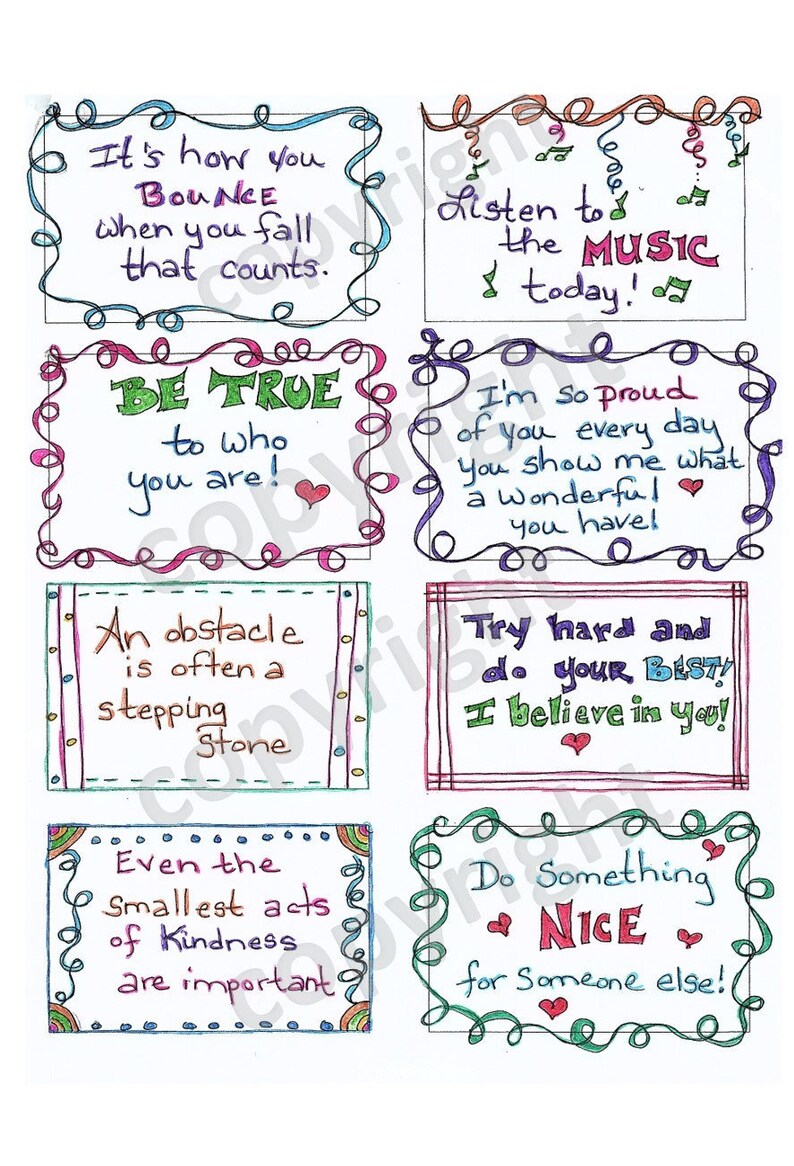 It's how you
BOUNCE
when you fall
that counts.
Listen to
the MUSIC
today!
BE TRUE
to who
you are!
I'm so proud
of you every day
you show me what
a wonderful
you have!
An obstacle
is often a
stepping
stone
Try hard and
do your BEST!
I believe in you!
Even the
smallest acts
of Kindness
are important
Do Something
NICE
for Someone else!
copyright
copyright
copyright
copyright